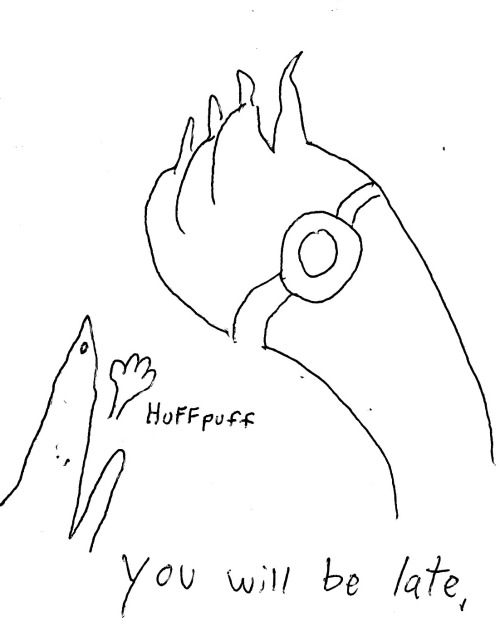 HuFFpuff
you will be late,